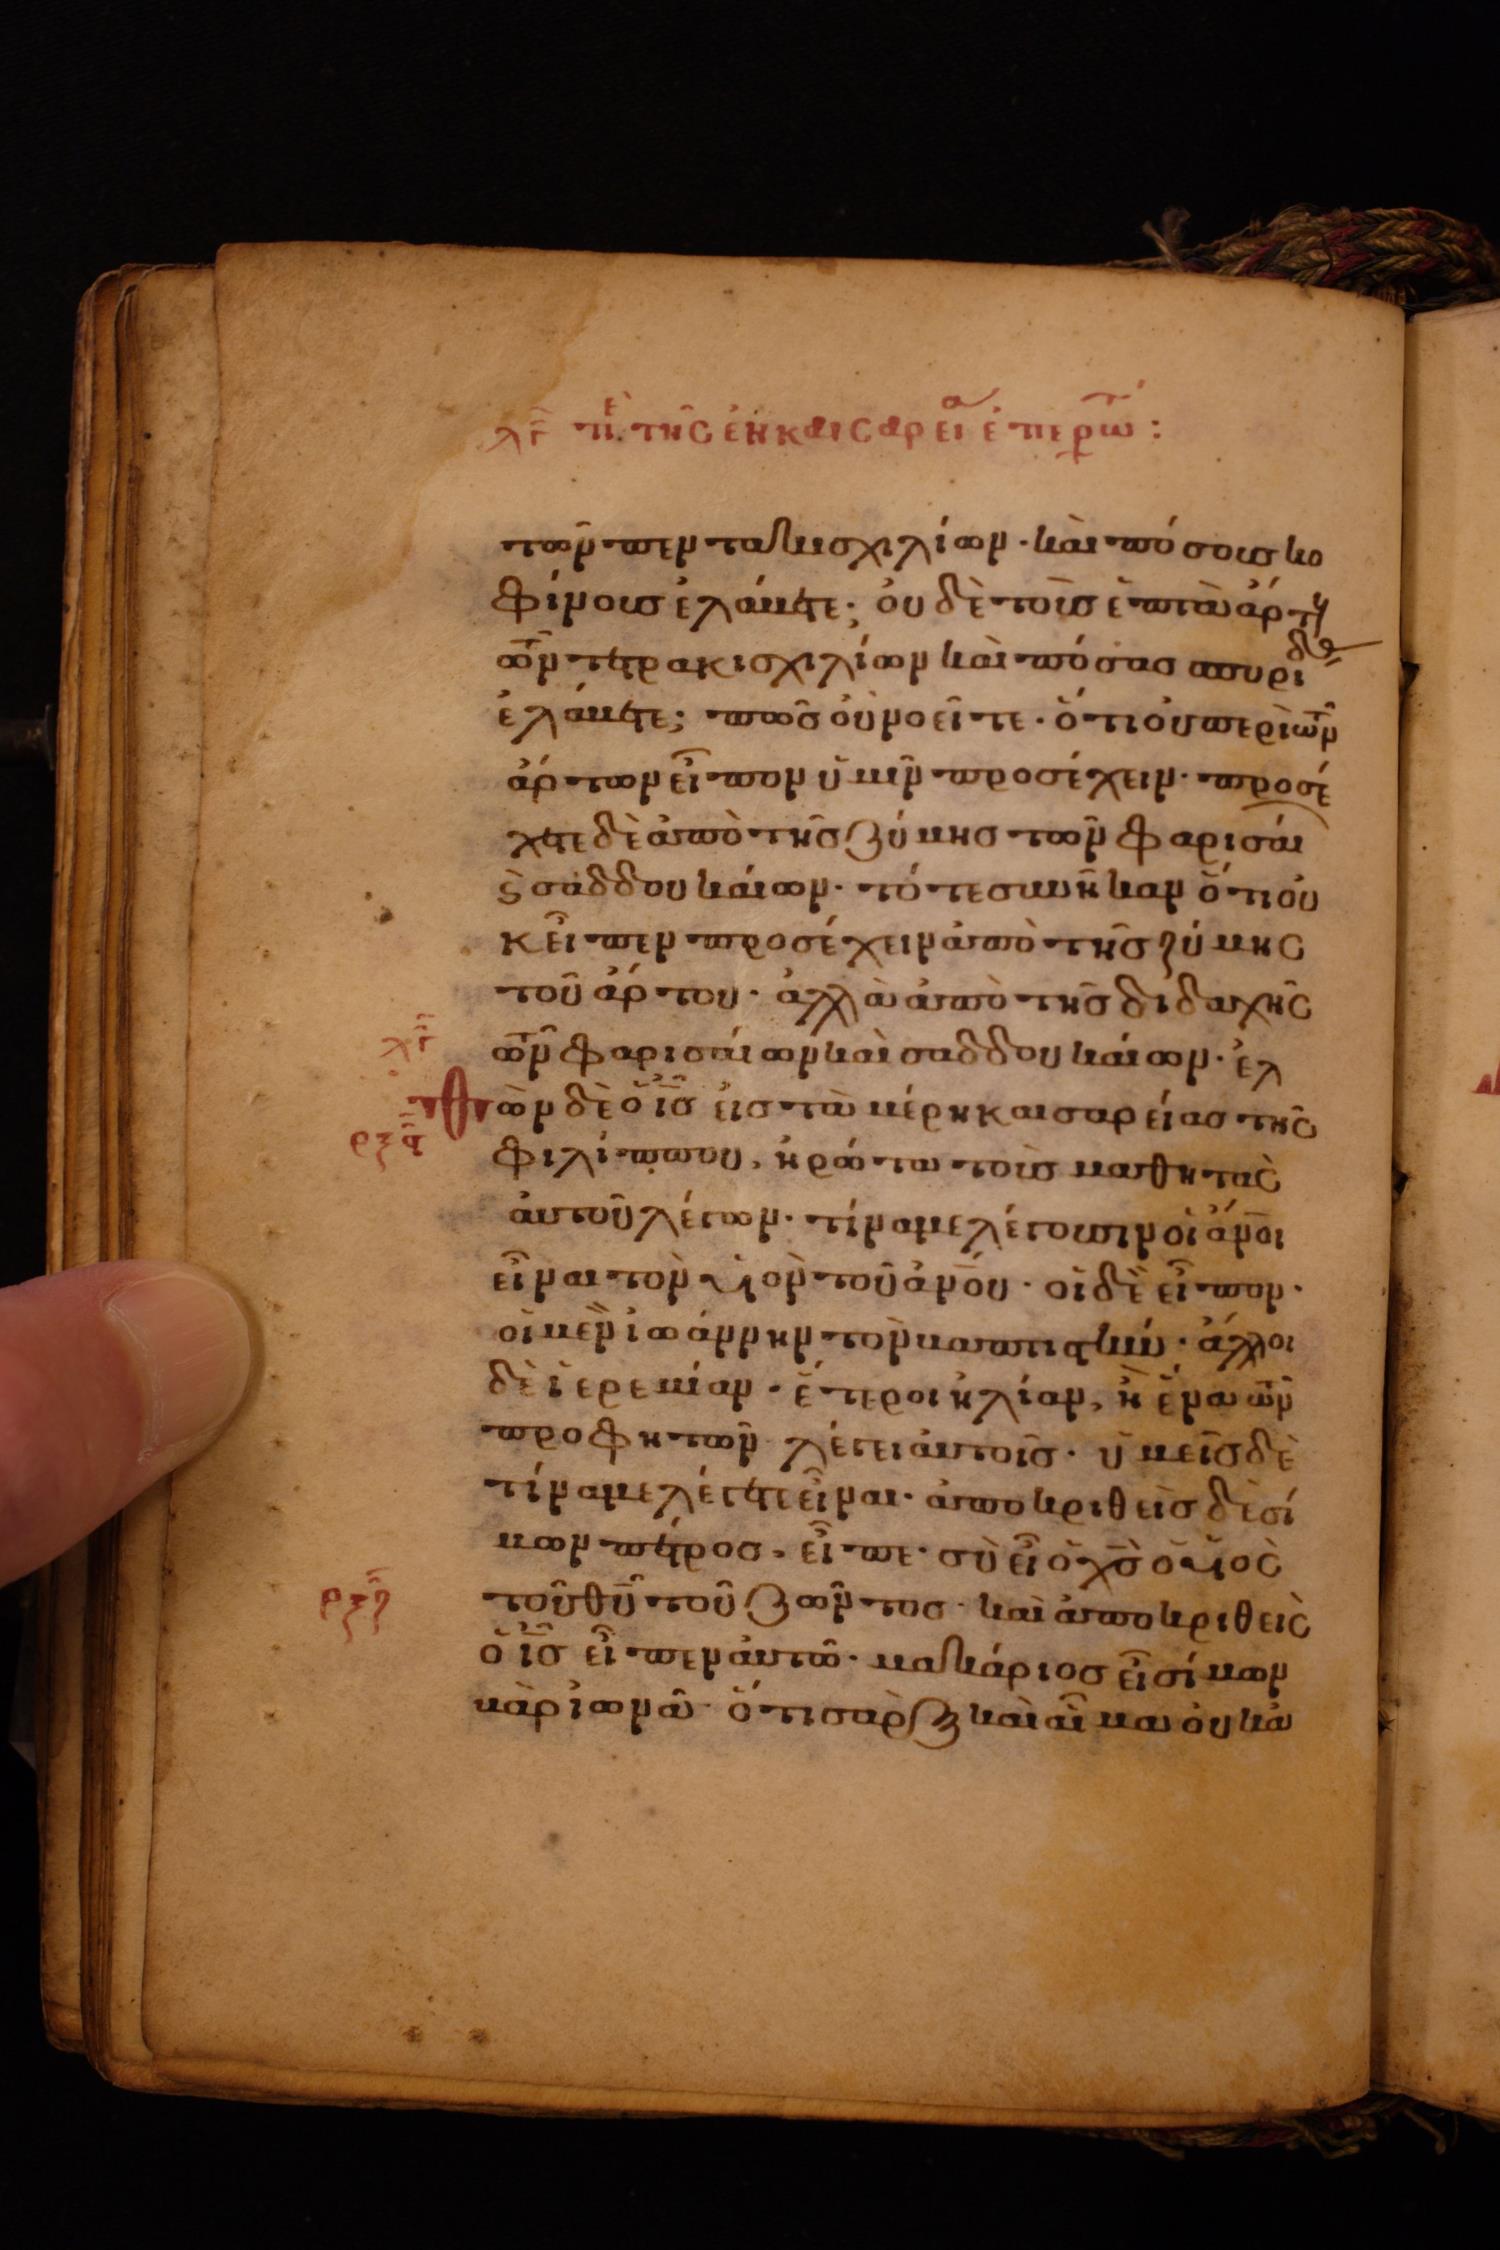 λγ̅ πε̣ τῆς ἐν καισαρεί(α) ἐπερωτ :
τῶν πεντακισχιλίων· καὶ πόσους κο
φίνους ἐλάβετε; οὐδὲ τοὺς ἑπτὰ ἄρτους
τῶν τετρακισχιλίων καὶ πόσας σπυρίδας
ἐλάβετε; πῶς οὐ νοεῖτε· ὅτι οὐ περὶ τῶν
ἄρτων εἶπον ὑμῖν προσέχειν· προσέ
χετε δὲ ἀπὸ τῆς ζύμης τῶν φαρισαί
ϛ̀ σαδδουκαίων· τότε συνῆκαν ὅτι οὐ
κ εἶπεν προσέχειν ἀπὸ τῆς ζύμης
τοῦ ἄρτου· ἀλλὰ ἀπὸ τῆς διδαχῆς
τῶν φαρισαίων καὶ σαδδουκαίων· ἐλ
λγ̅
θὼν δὲ ὁ ι̅ς̅ εἰς τὰ μέρη καισαρείας τῆς
ρξϛ
φιλίππου, ἠρώτα τοὺς μαθητὰς
αὐτοῦ λέγων· τίνα με λέγουσιν οἱ ἄν̅οι
εἶναι τὸν υἱὸν τοῦ ἀν̅ου· οἱ δὲ εἶπον·
οἱ μὲν ἰωάννην τὸν βαπτιστήν· ἄλλοι
δὲ ἱερεμίαν· ἕτεροι ἠλίαν, ἢ ἕνα τῶν
προφητῶν λέγει αὐτοῖς· ὑμεῖς δὲ
τίνα με λέγετε εἶναι· ἀποκριθεὶς δὲ σί
μων πέτρος, εἶπε· σὺ εἶ ὁ χ̅ς̅ ὁ υἱὸς
τοῦ θ̅υ̅ τοῦ ζῶντος· καὶ ἀποκριθεὶς
ρξζ
ὁ ι̅ς̅ εἶπεν αὐτῶ· μακάριος εἶ σίμων
βὰρ ἰωνᾶ· ὅτι σὰρξ καὶ αἷμα οὐκ ἀ